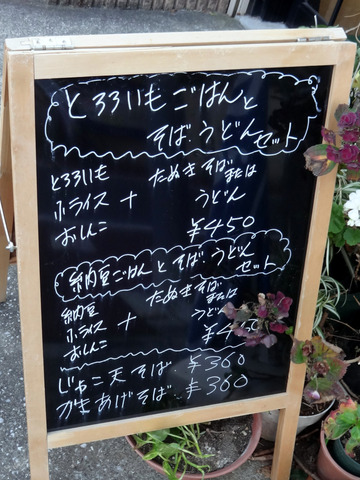 とろろいもごはんと
そば.うどんセット
とろろいも たぬきそばまたは
小ライス + うどん
おしんこ ¥450
納豆ごはんとそば.うどんセット
納豆 たぬきそばまたは
小ライス + うどん
おしんこ ¥450
じゃこ天そば. ¥360
かきあげそば. ¥360